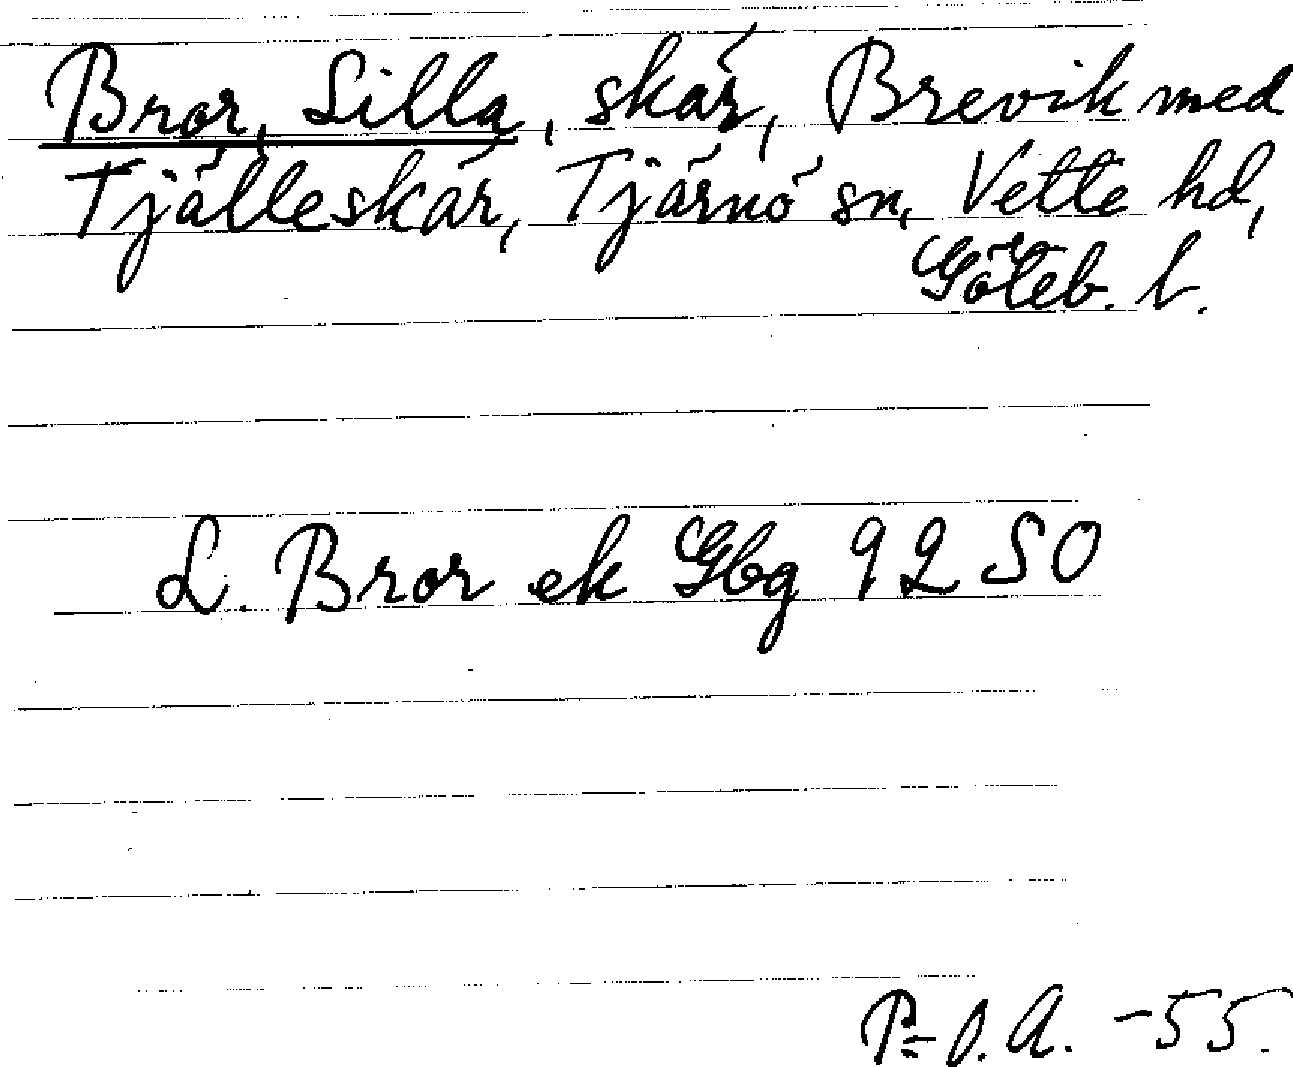 Bror, Lilla, skär, Brevik med
Tjälleskär, Tjärnö sn, Vette hd,
Göteb. l.
L. Bror ek Gbg 92 SO
P-O. A. -55.